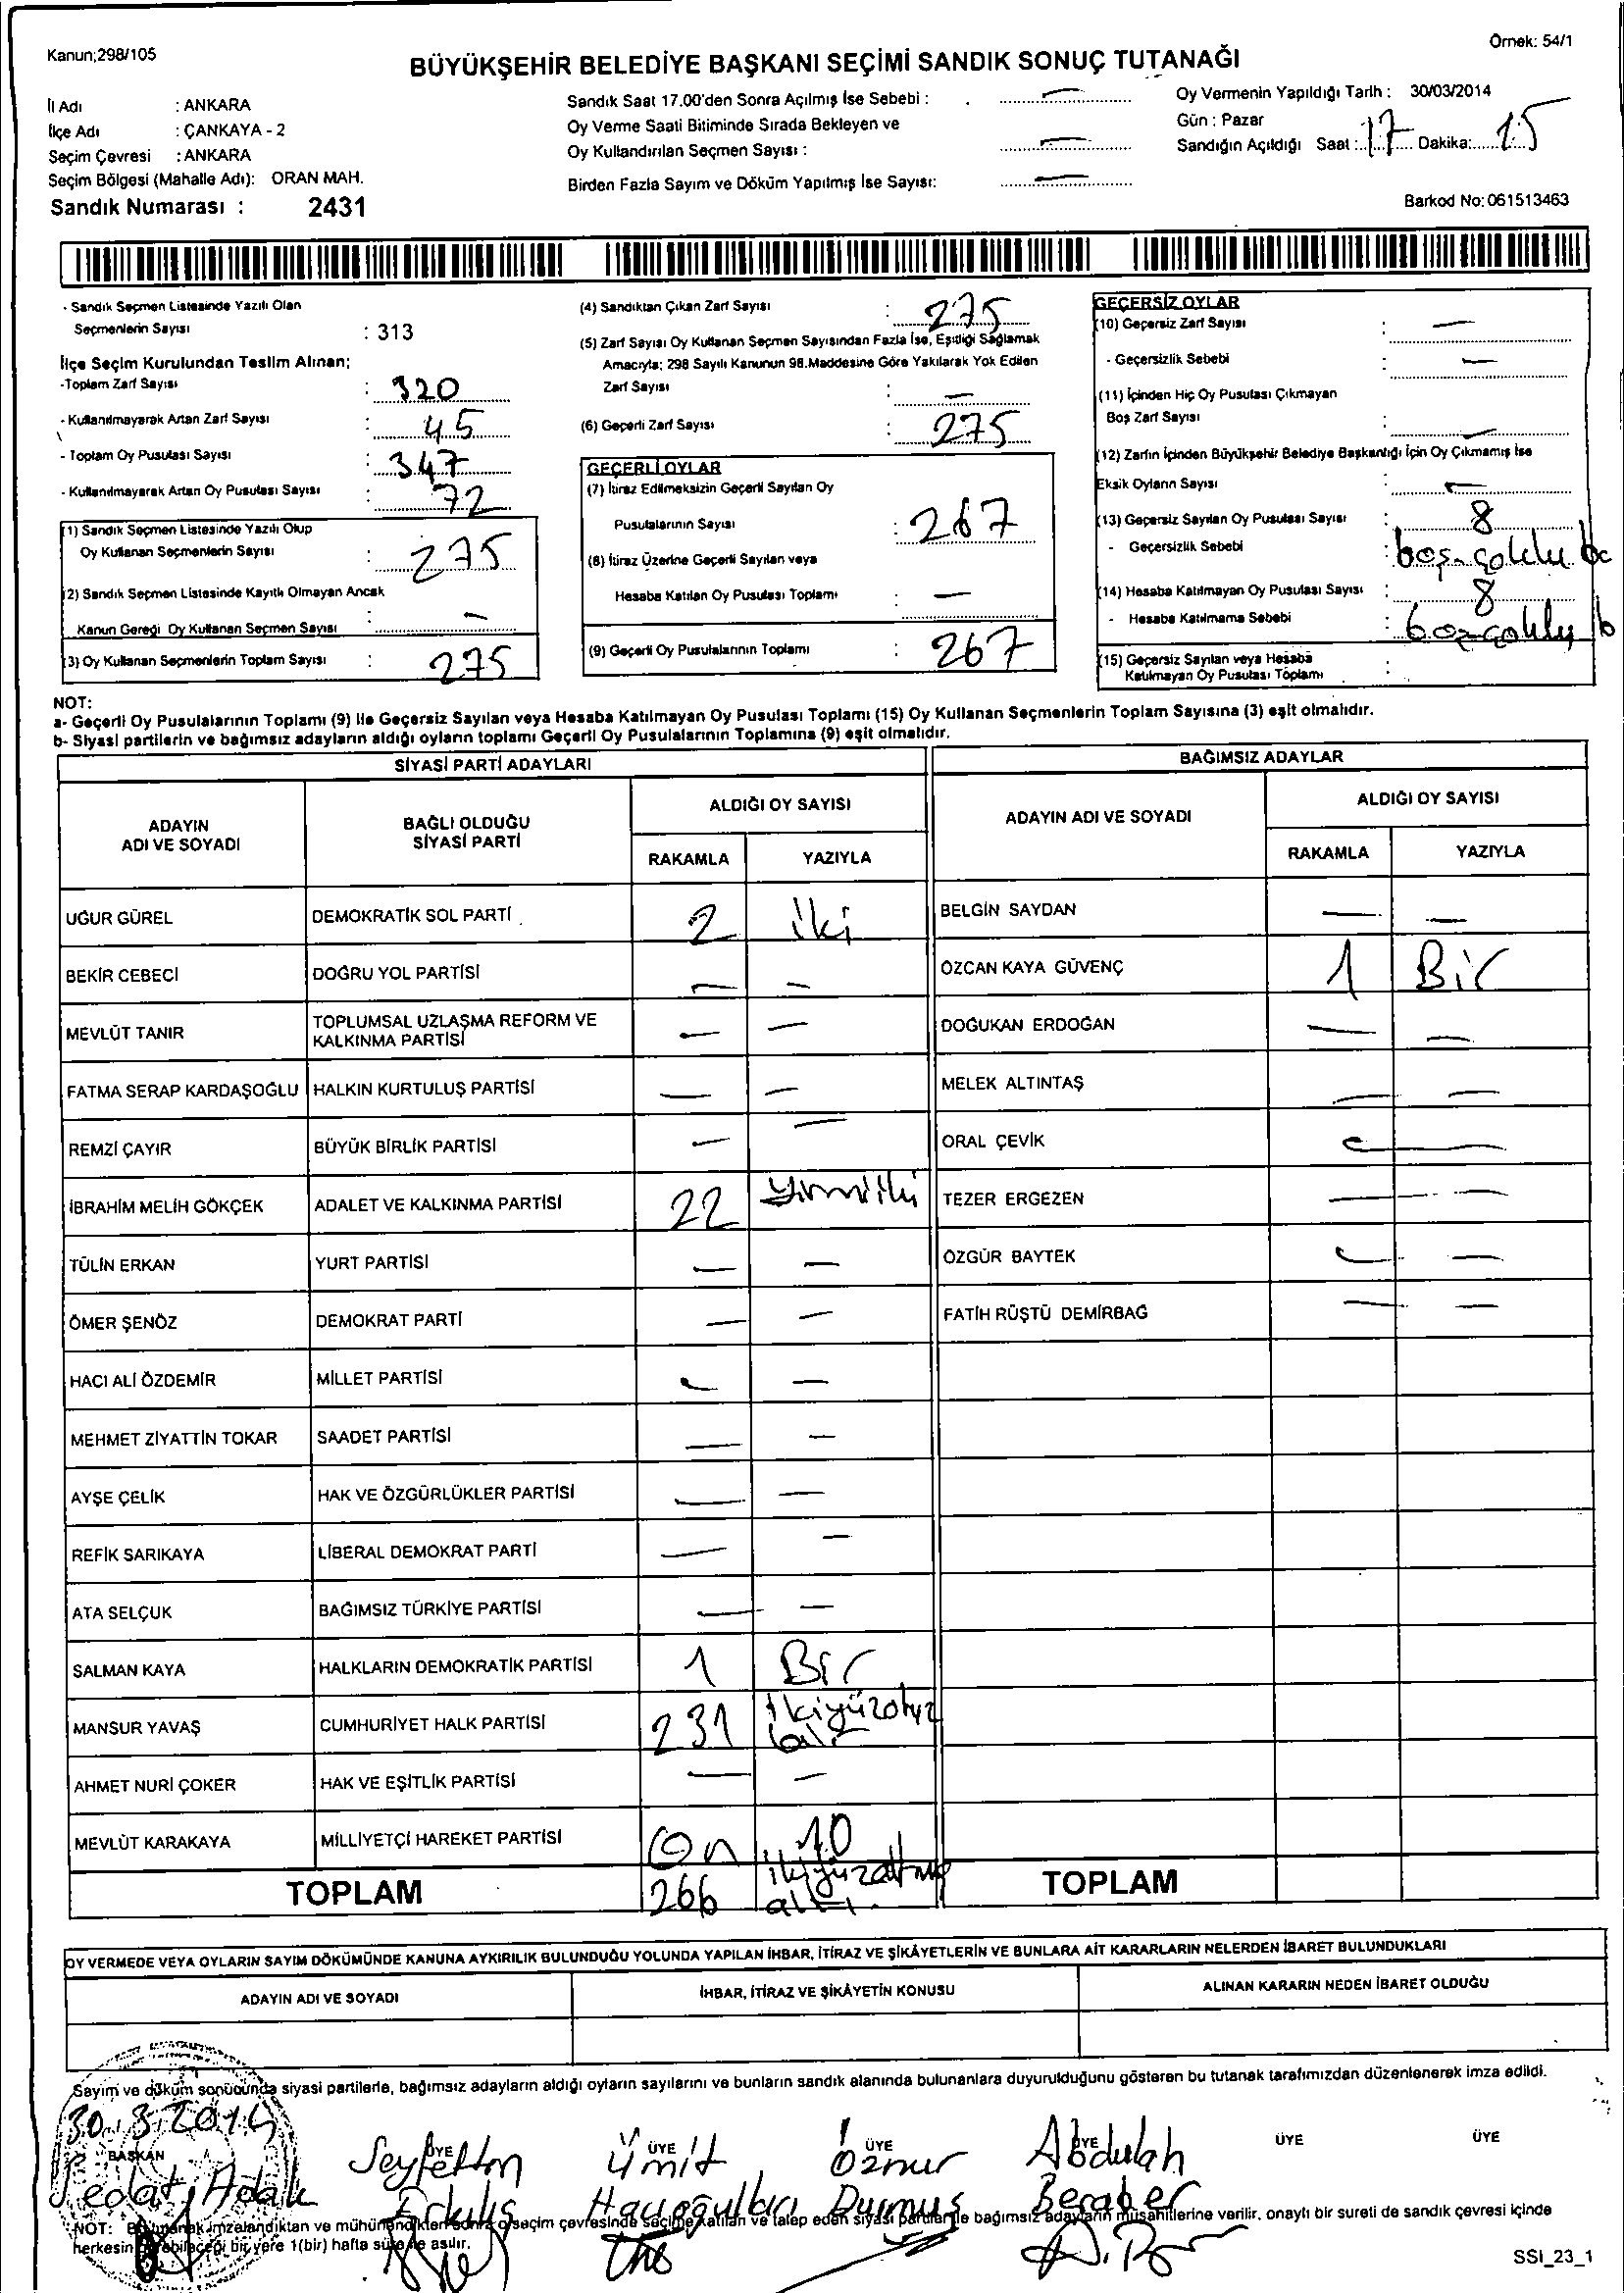 Kanun;298/105
Örnek: 54/1
BÜYÜKŞEHİR BELEDİYE BAŞKANI SEÇİMİ SANDIK SONUÇ TUTANAĞI
İl Adı : ANKARA
İlçe Adı : ÇANKAYA - 2
Seçim Çevresi : ANKARA
Seçim Bölgesi (Mahalle Adı): ORAN MAH.
Sandık Numarası : 2431
Sandık Saat 17.00'den Sonra Açılmış İse Sebebi : —
Oy Verme Saati Bitiminde Sırada Bekleyen ve
Oy Kullandırılan Seçmen Sayısı : —
Birden Fazla Sayım ve Döküm Yapılmış İse Sayısı: —
Oy Vermenin Yapıldığı Tarih : 30/03/2014
Gün : Pazar
Sandığın Açıldığı Saat : 17 Dakika: 15
Barkod No: 061513463
- Sandık Seçmen Listesinde Yazılı Olan
Seçmenlerin Sayısı : 313
İlçe Seçim Kurulundan Teslim Alınan;
-Toplam Zarf Sayısı : 320
- Kullanılmayarak Artan Zarf Sayısı : 45
- Toplam Oy Pusulası Sayısı : 347
- Kullanılmayarak Artan Oy Pusulası Sayısı : 72
(1) Sandık Seçmen Listesinde Yazılı Olup
Oy Kullanan Seçmenlerin Sayısı : 275
(2) Sandık Seçmen Listesinde Kayıtlı Olmayan Ancak
Kanun Gereği Oy Kullanan Seçmen Sayısı : —
(3) Oy Kullanan Seçmenlerin Toplam Sayısı : 275
(4) Sandıktan Çıkan Zarf Sayısı : 275
(5) Zarf Sayısı Oy Kullanan Seçmen Sayısından Fazla İse, Eşitliği Sağlamak
Amacıyla; 298 Sayılı Kanunun 98.Maddesine Göre Yakılarak Yok Edilen
Zarf Sayısı : —
(6) Geçerli Zarf Sayısı : 275
GEÇERLİ OYLAR
(7) İtiraz Edilmeksizin Geçerli Sayılan Oy
Pusulalarının Sayısı : 267
(8) İtiraz Üzerine Geçerli Sayılan veya
Hesaba Katılan Oy Pusulası Toplamı : —
(9) Geçerli Oy Pusulalarının Toplamı : 267
GEÇERSİZ OYLAR
(10) Geçersiz Zarf Sayısı : —
- Geçersizlik Sebebi : —
(11) İçinden Hiç Oy Pusulası Çıkmayan
Boş Zarf Sayısı : —
(12) Zarfın İçinden Büyükşehir Belediye Başkanlığı İçin Oy Çıkmamış İse
Eksik Oyların Sayısı : —
(13) Geçersiz Sayılan Oy Pusulası Sayısı : 8
- Geçersizlik Sebebi :
(14) Hesaba Katılmayan Oy Pusulası Sayısı : 8
- Hesaba Katılmama Sebebi :
(15) Geçersiz Sayılan veya Hesaba
Katılmayan Oy Pusulası Toplamı :
NOT:
a- Geçerli Oy Pusulalarının Toplamı (9) ile Geçersiz Sayılan veya Hesaba Katılmayan Oy Pusulası Toplamı (15) Oy Kullanan Seçmenlerin Toplam Sayısına (3) eşit olmalıdır.
b- Siyasi partilerin ve bağımsız adayların aldığı oyların toplamı Geçerli Oy Pusulalarının Toplamına (9) eşit olmalıdır.
SİYASİ PARTİ ADAYLARI
ADAYIN ADI VE SOYADI
BAĞLI OLDUĞU SİYASİ PARTİ
ALDIĞI OY SAYISI
RAKAMLA YAZIYLA
UĞUR GÜREL DEMOKRATİK SOL PARTİ 2 iki
BEKİR CEBECİ DOĞRU YOL PARTİSİ — —
MEVLÜT TANIR TOPLUMSAL UZLAŞMA REFORM VE KALKINMA PARTİSİ — —
FATMA SERAP KARDAŞOĞLU HALKIN KURTULUŞ PARTİSİ — —
REMZİ ÇAYIR BÜYÜK BİRLİK PARTİSİ — —
İBRAHİM MELİH GÖKÇEK ADALET VE KALKINMA PARTİSİ 22
TÜLİN ERKAN YURT PARTİSİ — —
ÖMER ŞENÖZ DEMOKRAT PARTİ — —
HACI ALİ ÖZDEMİR MİLLET PARTİSİ — —
MEHMET ZİYATTİN TOKAR SAADET PARTİSİ — —
AYŞE ÇELİK HAK VE ÖZGÜRLÜKLER PARTİSİ — —
REFİK SARIKAYA LİBERAL DEMOKRAT PARTİ — —
ATA SELÇUK BAĞIMSIZ TÜRKİYE PARTİSİ — —
SALMAN KAYA HALKLARIN DEMOKRATİK PARTİSİ 1 Bir
MANSUR YAVAŞ CUMHURİYET HALK PARTİSİ 231 ikiyüzotuz bir
AHMET NURİ ÇOKER HAK VE EŞİTLİK PARTİSİ — —
MEVLÜT KARAKAYA MİLLİYETÇİ HAREKET PARTİSİ On 10
TOPLAM 266 ikiyüzaltmış altı.
BAĞIMSIZ ADAYLAR
ADAYIN ADI VE SOYADI
ALDIĞI OY SAYISI
RAKAMLA YAZIYLA
BELGİN SAYDAN — —
ÖZCAN KAYA GÜVENÇ 1 Bir
DOĞUKAN ERDOĞAN — —
MELEK ALTINTAŞ — —
ORAL ÇEVİK — —
TEZER ERGEZEN — —
ÖZGÜR BAYTEK — —
FATİH RÜŞTÜ DEMİRBAĞ — —
TOPLAM
OY VERMEDE VEYA OYLARIN SAYIM DÖKÜMÜNDE KANUNA AYKIRILIK BULUNDUĞU YOLUNDA YAPILAN İHBAR, İTİRAZ VE ŞİKÂYETLERİN VE BUNLARA AİT KARARLARIN NELERDEN İBARET BULUNDUKLARI
ADAYIN ADI VE SOYADI
İHBAR, İTİRAZ VE ŞİKÂYETİN KONUSU
ALINAN KARARIN NEDEN İBARET OLDUĞU
Sayım ve döküm sonucunda siyasi partilerle, bağımsız adayların aldığı oyların sayılarını ve bunların sandık alanında bulunanlara duyurulduğunu gösteren bu tutanak tarafımızdan düzenlenerek imza edildi.
30.3.2014
BAŞKAN ÜYE ÜYE ÜYE ÜYE ÜYE ÜYE
Sedat Adak
Seyfettin
Ümit
Öznur Durmuş
Abdulah Beraber
NOT: Bu tutanak imzalandıktan ve mühürlendikten sonra o seçim çevresinde seçime katılan ve talep eden siyasi partiler ile bağımsız adayların müşahitlerine verilir. onaylı bir sureti de sandık çevresi içinde
herkesin görebileceği bir yere 1(bir) hafta süre ile asılır.
SSI_23_1